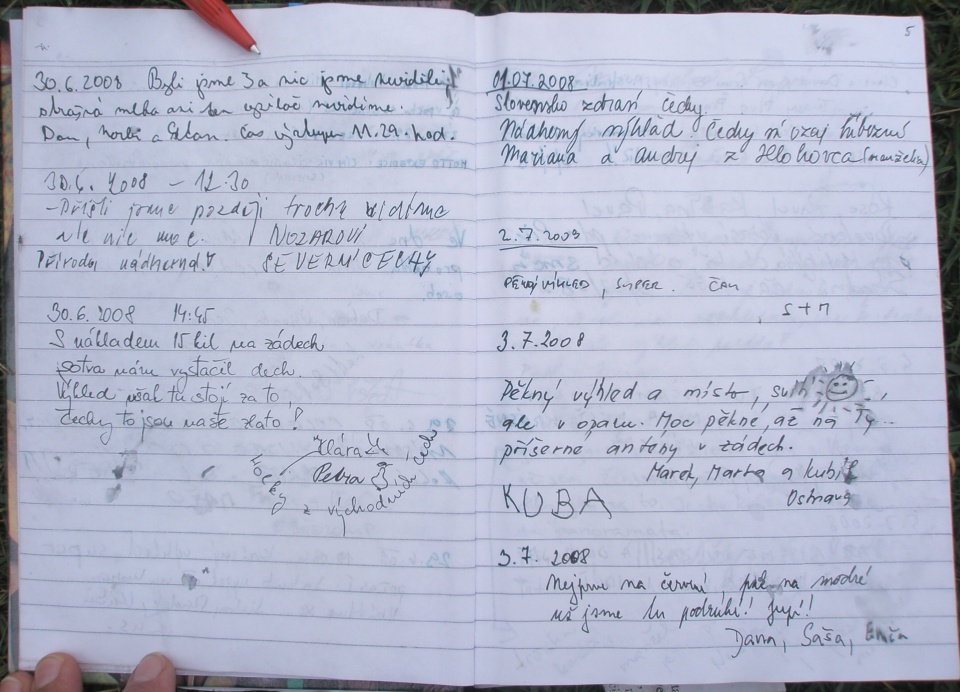 5
30.6.2008 Byli jsme 3 a nic jsme neviděli,
strašná mlha ani ten vysílač nevidíme.
Dan, a čas výstupu 11.29. hod.
30.6. 2008 - 12.30
- Přišli jsme později trochu vidíme
ale nic moc. NOZAROVI
Příroda nádherná! SEVERNÍ ČECHY
30.6.2008 14:45
S nákladem 15 kil na zádech
sotva nám vystačil dech.
Výhled však tu stojí za to,
Čechy to jsou naše zlato!
Klára
Petra
holky z východních Čech
01.07.2008
Slovensko zdraví Čechy.
Nádherný výhľad Čechy sú ozaj
Mariana a Andrej z Hlohovca (manželia)
2.7.2008
PĚKNÝ VÝHLED, SUPER.
S + M
3.7.2008
Pěkný výhled a místo,
ale v oparu. Moc pěkné, až na Ty...
příšerné antény v zádech.
Marek, Marta a Kubík
Ostrava
KUBA
3.7. 2008
Nejprve na červené, pak na modré
už jsme tu podruhé! Jupí!
Dana, Saša,